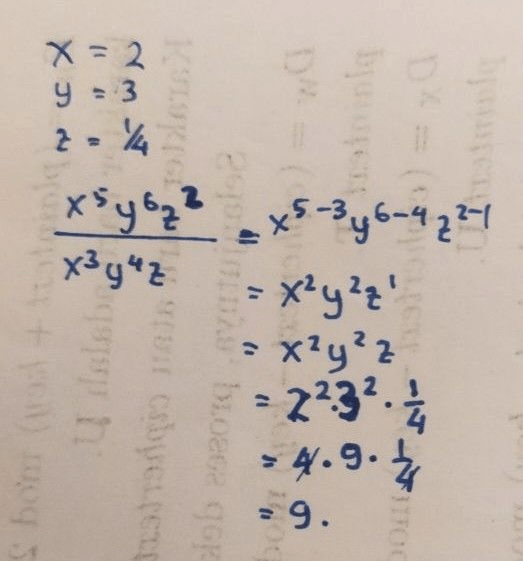 x = 2
y = 3
z = 1/4
x⁵y⁶z² / x³y⁴z = x⁵⁻³y⁶⁻⁴z²⁻¹
= x²y²z¹
= x²y²z
= 2².3² . 1/4
= 4 . 9 . 1/4
= 9.